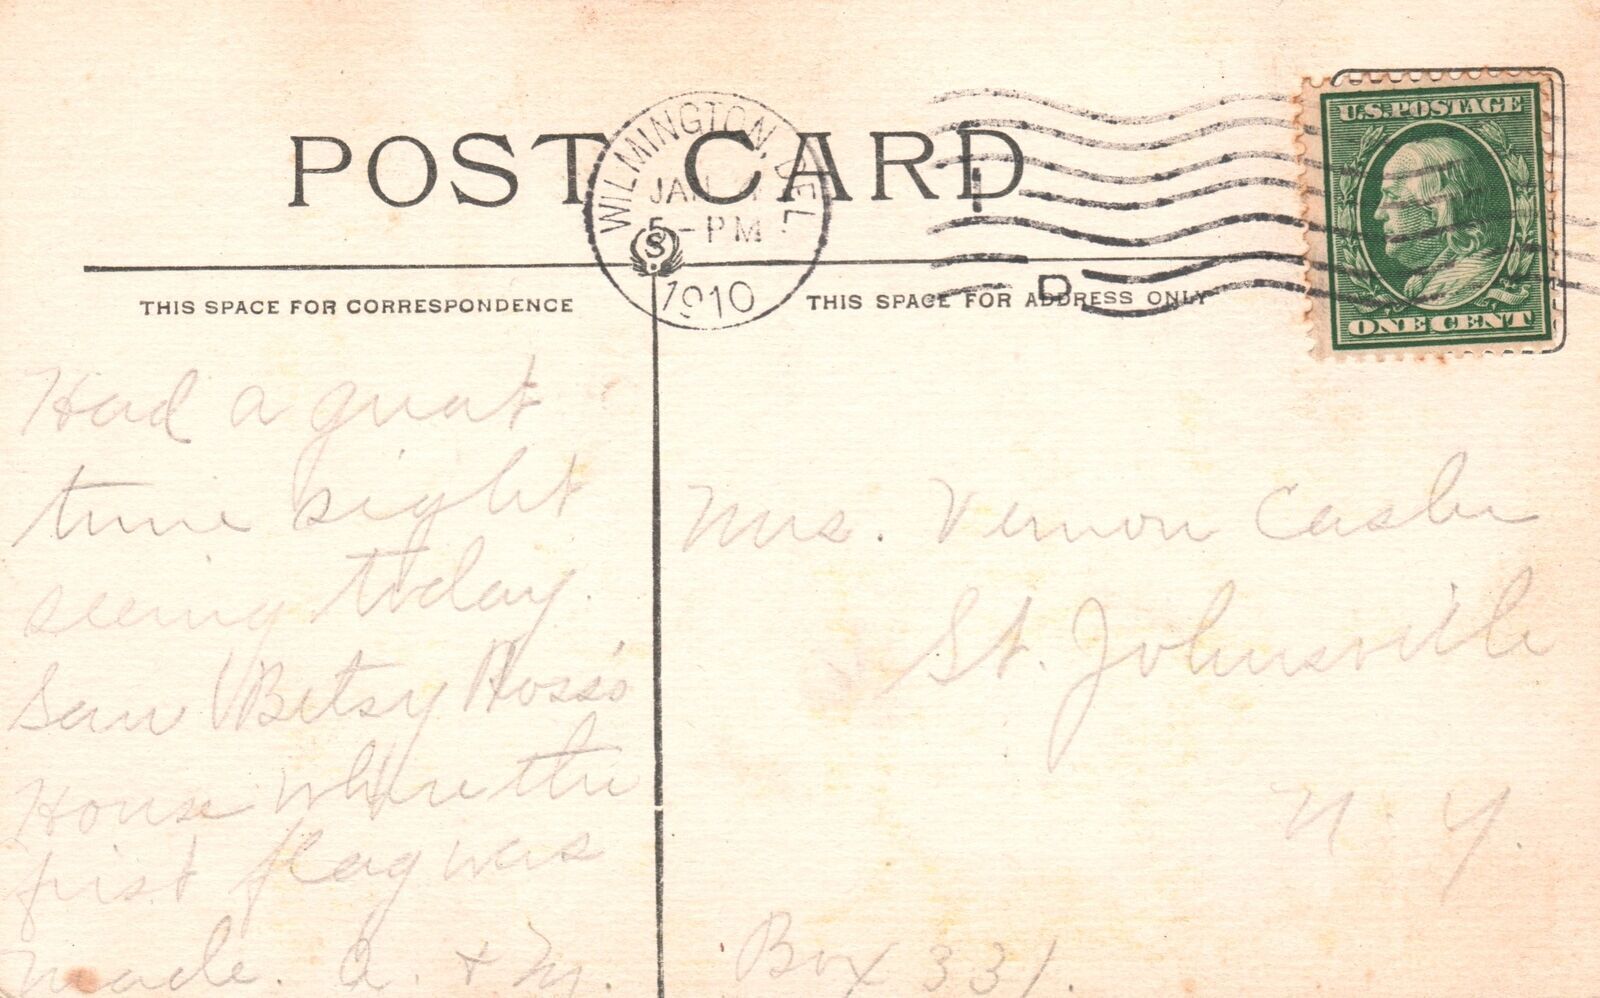 POST CARD
WILMINGTON, DEL.
JAN
5-PM
1910
U.S. POSTAGE
ONE CENT
S
D
THIS SPACE FOR CORRESPONDENCE
THIS SPACE FOR ADDRESS ONLY
Had a great
time sight
seeing today.
Saw Betsy Ross's
House where the
first flag was
made. A. & M.
Mrs. Vernon Casler
St. Johnsville
N.Y.
Box 331.